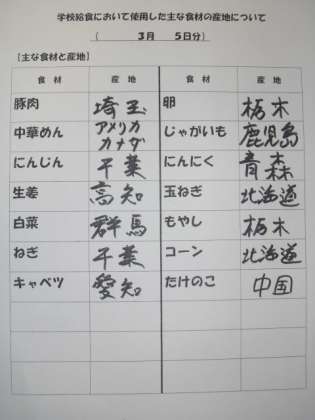 学校給食において使用した主な食材の産地について
（　3月　5日分）
［主な食材と産地］
食材 産地 食材 産地
豚肉 埼玉 卵 栃木
中華めん アメリカ カナダ じゃがいも 鹿児島
にんじん 千葉 にんにく 青森
生姜 高知 玉ねぎ 北海道
白菜 群馬 もやし 栃木
ねぎ 千葉 コーン 北海道
キャベツ 愛知 たけのこ 中国